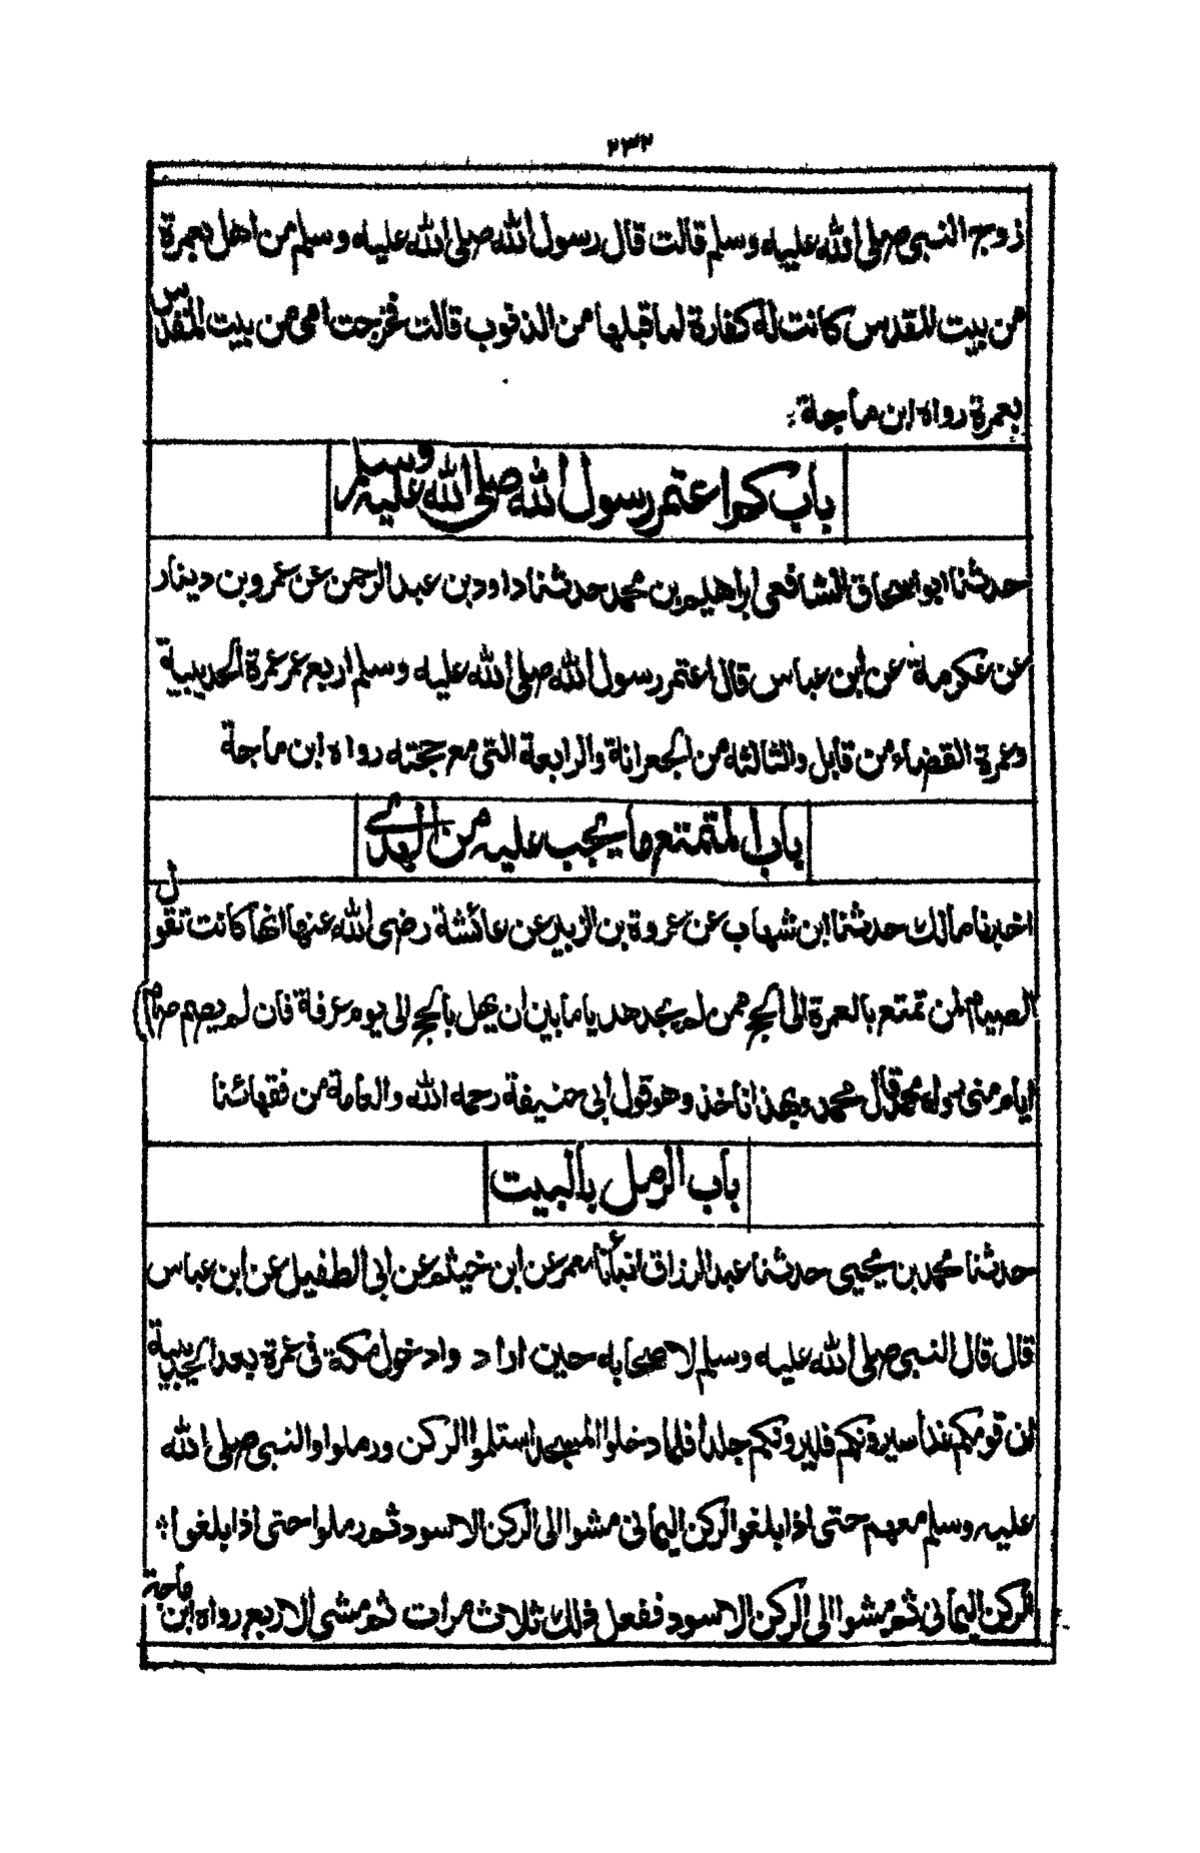 ٢٣٢
زوج النبى صلى الله عليه وسلم قالت قال رسول الله صلى الله عليه وسلم من اهل بعمرة
من بيت المقدس كانت له كفارة لما قبلها من الذنوب قالت فخرجت امى من بيت المقدس
بعمرة رواه ابن ماجة
باب كم اعتمر رسول الله صلى الله عليه وسلم
حدثنا ابو اسحاق الشافعى ابراهيم بن محمد حدثنا داود بن عبد الرحمن عن عمرو بن دينار
عن عكرمة عن ابن عباس قال اعتمر رسول الله صلى الله عليه وسلم اربع عمر عمرة الحديبية
وعمرة القضاء من قابل والثالثه من الجعرانة والرابعة التى مع حجته رواه ابن ماجة
باب المتمتع ما يجب عليه من الهدى
اخبرنا مالك حدثنا ابن شهاب عن عروة بن الزبير عن عائشة رضى الله عنها انها كانت تقول
الصيام لمن تمتع بالعمرة الى الحج ممن لم يجد هديا ما بين ان يهل بالحج الى يوم عرفة فان لم يصم صام
ايام منى رواه محمد قال محمد وبهذا ناخذ وهو قول ابى حنيفة رحمه الله والعامة من فقهائنا
باب الرمل بالبيت
حدثنا محمد بن يحيى حدثنا عبد الرزاق انبأنا معمر عن ابن خيثم عن ابى الطفيل عن ابن عباس
قال قال النبى صلى الله عليه وسلم لاصحابه حين اراد وا دخول مكة فى عمرة بعد الحديبية
ان قومكم غدا سيرونكم فليرونكم جلدا فلما دخلوا المسجد استلموا الركن ورملوا والنبى صلى الله
عليه وسلم معهم حتى اذا بلغوا الركن اليمانى مشوا الى الركن الاسود ثم رملوا حتى اذا بلغوا
الركن اليمانى ثم مشوا الى الركن الاسود ففعل ذلك ثلاث مرات ثم مشى الاربع رواه ابن ماجة